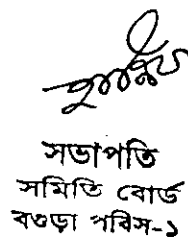 সভাপতি
সমিতি বোর্ড
বগুড়া পবিস-১